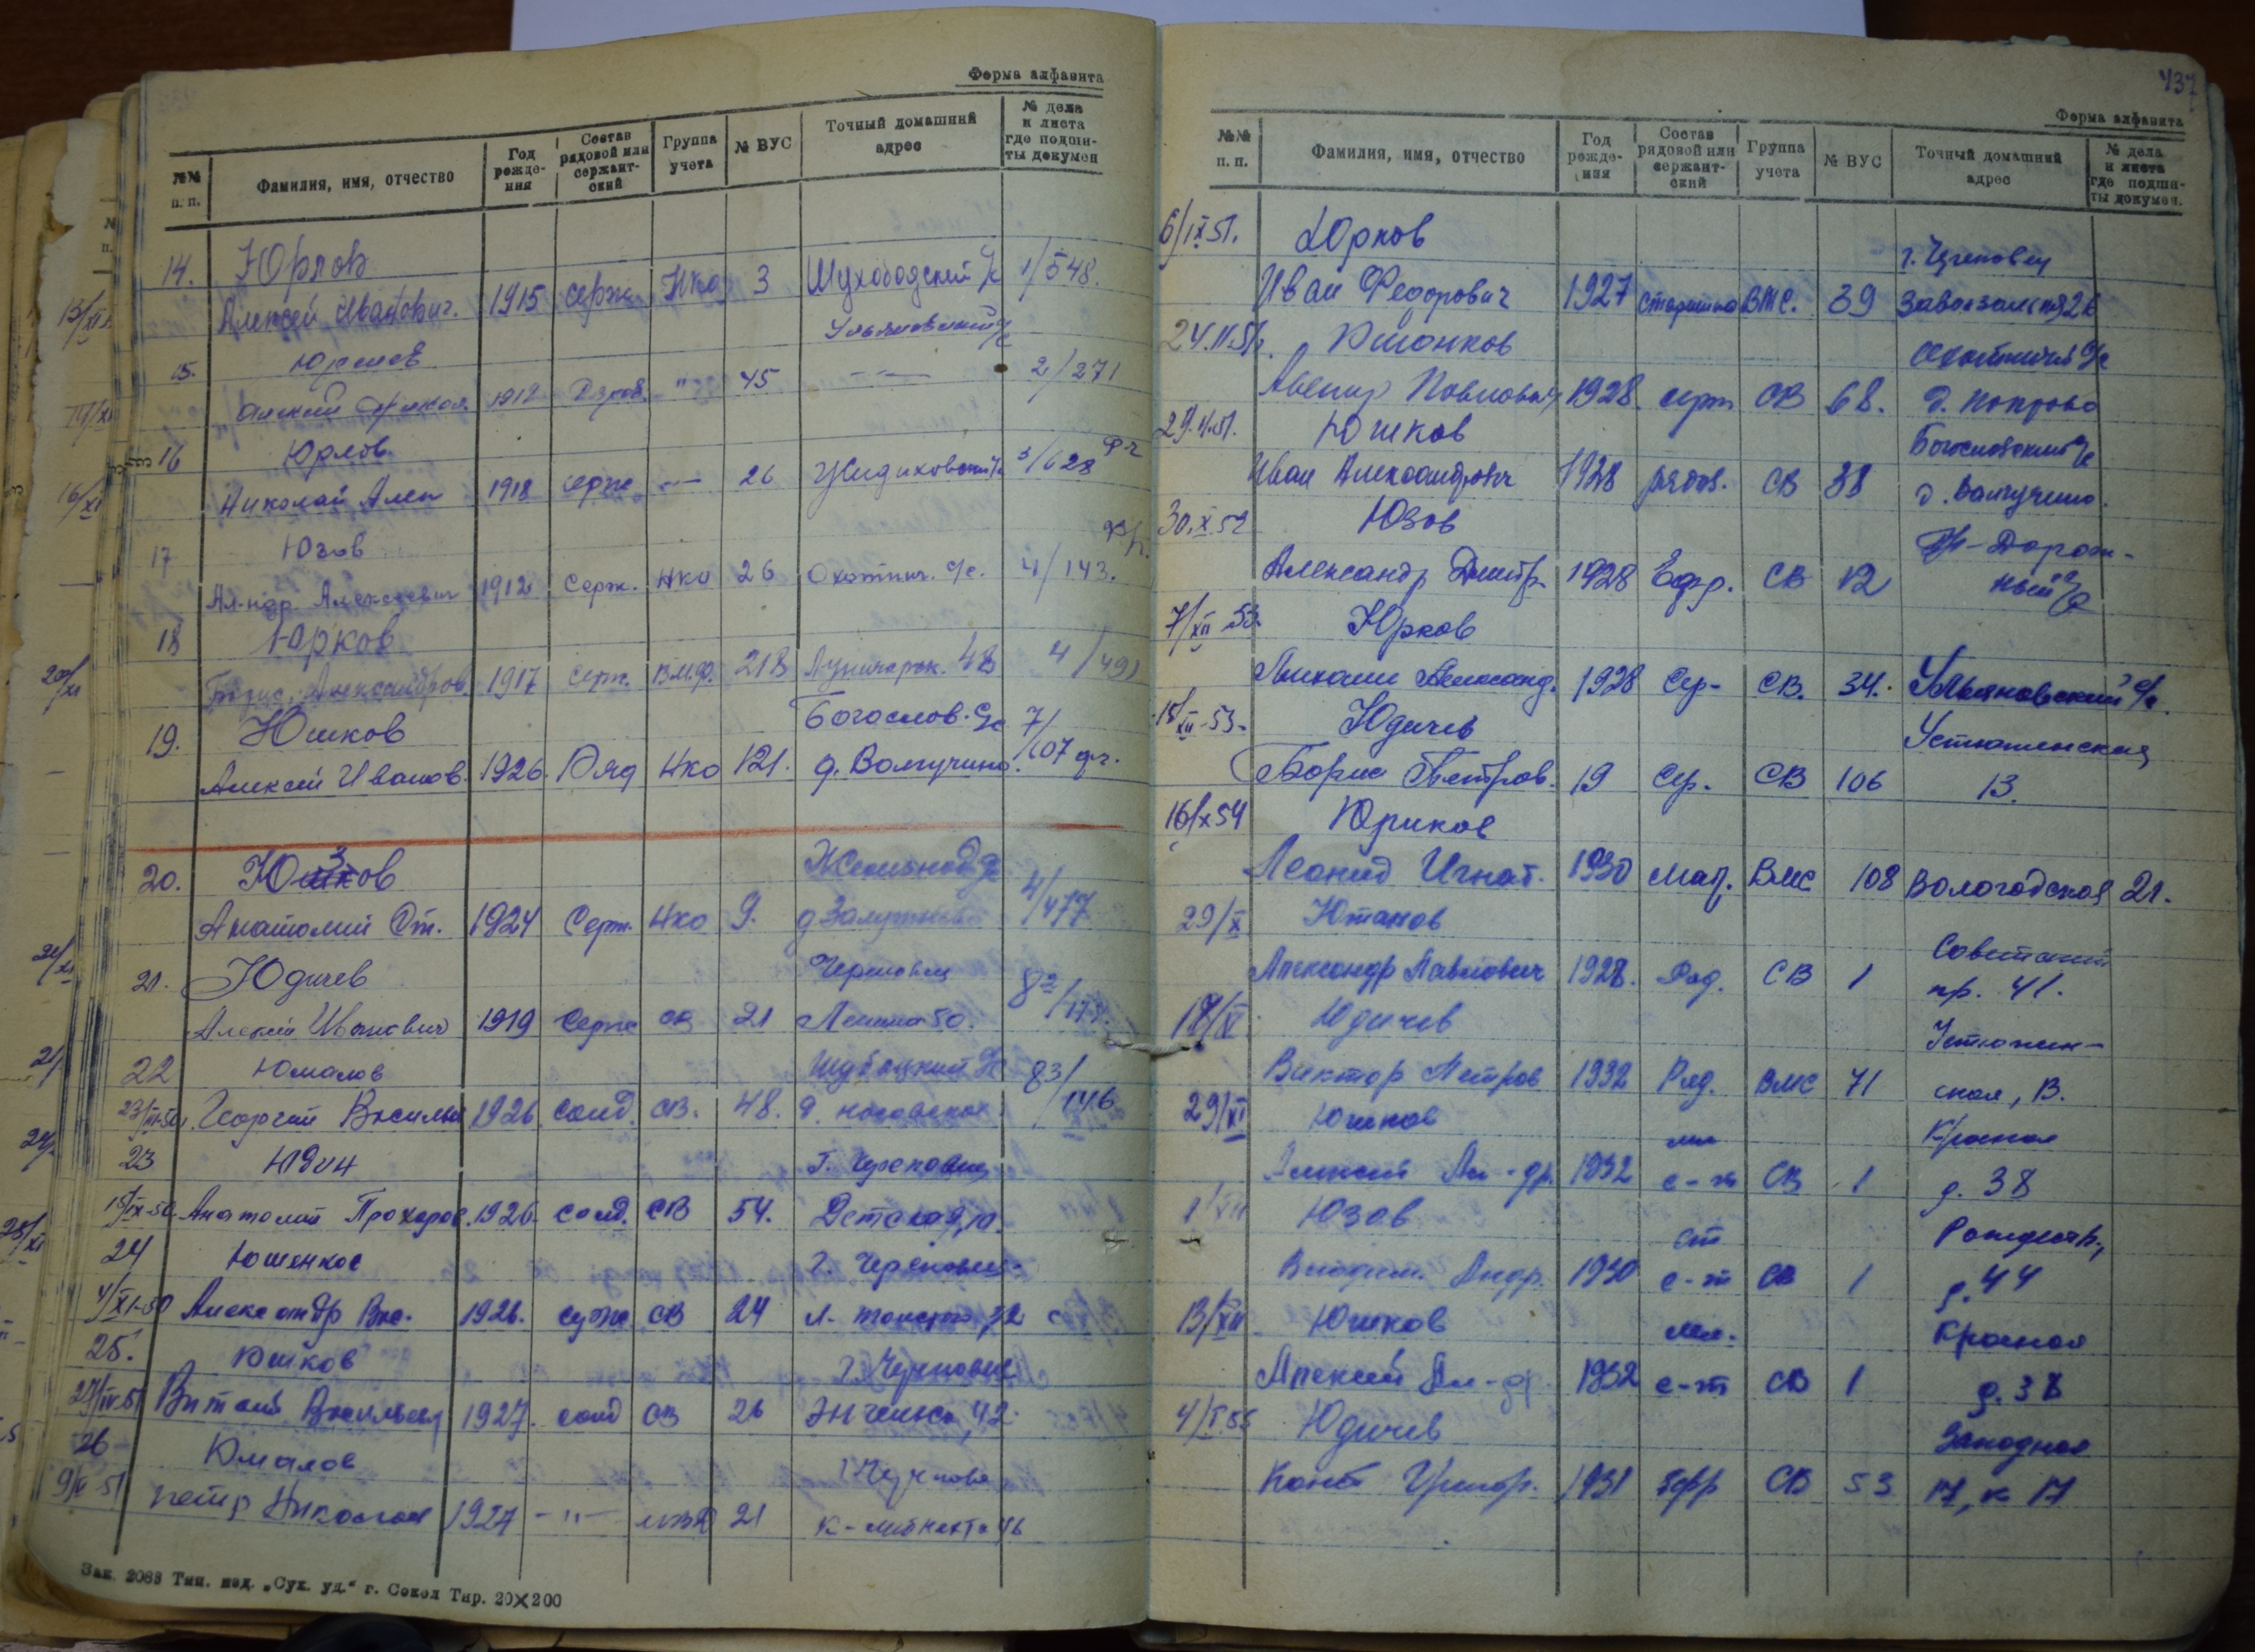 Форма алфавита
№№ п. п. Фамилия, имя, отчество Год рожде-ния Состав рядовой или сержант-ский Группа учета № ВУС Точный домашний адрес № дела и листа где подши-ты докумен
14. Юрлов
Алексей Иванович. 1915 серж НКО 3 Шухободский с/с 1/548.
Ульяновский с/с
15. Юршев
1912 Рядов. " 45 2/271
16 Юрлов
Николай Алек 1918 серж — 26 3/628 фч
17 Юзов
Ал-ндр Алексеевич 1912 Серж. НКО 26 Охотнич. с/с. 4/143.
18 Юрков
Борис Александров. 1917 серж. ВМФ. 218 Луначарск. 48 4/491
19. Юшков Богослов. с/с 7/
Алексей Иванов. 1926. Ряд НКО 121. д. Волгучино. 107 фч.
20. Юзов Железнод. с/с 4/
Анатолий От. 1924 Серж. НКО 9. 477
21. Юдичев Череповец
Алексей Иванович 1919 Серж СВ 21 Ленина 50.
22 Юмалов 83/
Георгий Василь 1926 солд. СВ. 48. 146
23 Юдин г. Череповец
18/IX-50 Анатолий Прохоров. 1926. солд. СВ 54. Детская, 10.
24 Юшенков г. Череповец
4/XI-50 Александр Вас. 1926. серж СВ 24
25. Юшков г. Череповец
27/IV-51 Виталий Васильев 1927. солд СВ 26 Энгельса, 42.
26 Юмалов г. Черепов
9/V 51 Петр Николаев 1927 -"- 21 К-Либкнехта 46
Зак. 2088 Тип. изд. „Сух. уд." г. Сокол Тир. 20X200
437
Форма алфавита
№№ п. п. Фамилия, имя, отчество Год рожде-ния Состав рядовой или сержант-ский Группа учета № ВУС Точный домашний адрес № дела и листа где подши-ты докумен.
6/IX 51. Юрков г. Череповец
Иван Федорович 1927 старшина ВМС. 39
24.11.51. Юшонков с/с
Авенир Павлович 1928. серж СВ 68.
29.11.51. Юшков Богословский с/с
Иван Александрович 1928 рядов. СВ 38 д. Волгучино.
30.X.52 Юзов Ж-Дорож-
Александр Дмитр. 1928 Ефр. СВ 12 ный с/с
7/XII 53. Юрков
Михаил Александ. 1928 Сер- СВ. 34. Ульяновский с/с.
15/XII-53- Юдичев Устюженская
Борис Петров. 19 Сер. СВ 106 13.
16/X 54 Юриков
Леонид Игнат. 1930 мат. ВМС 108 Вологодская 21.
29/X Ютанов Советский
Александр Павлович 1928. Ряд. СВ 1 пр. 41.
Юдичев Устюжен-
Виктор Петров 1932 Ряд. ВМС 71 ская, 13.
29/XI Юшков мл Красная
Алексей Ал-др. 1932 с-т СВ 1 д. 38
1/XII Юзов ст Рождеств.,
Андр. 1930 с-т СВ 1 д. 44
13/XII Юшков мл. Красная
Алексей Ал-др. 1932 с-т СВ 1 д. 38
4/I.55 Юдичев Западная
Конст Григор. 1931 Ефр СВ 53 17, к 17